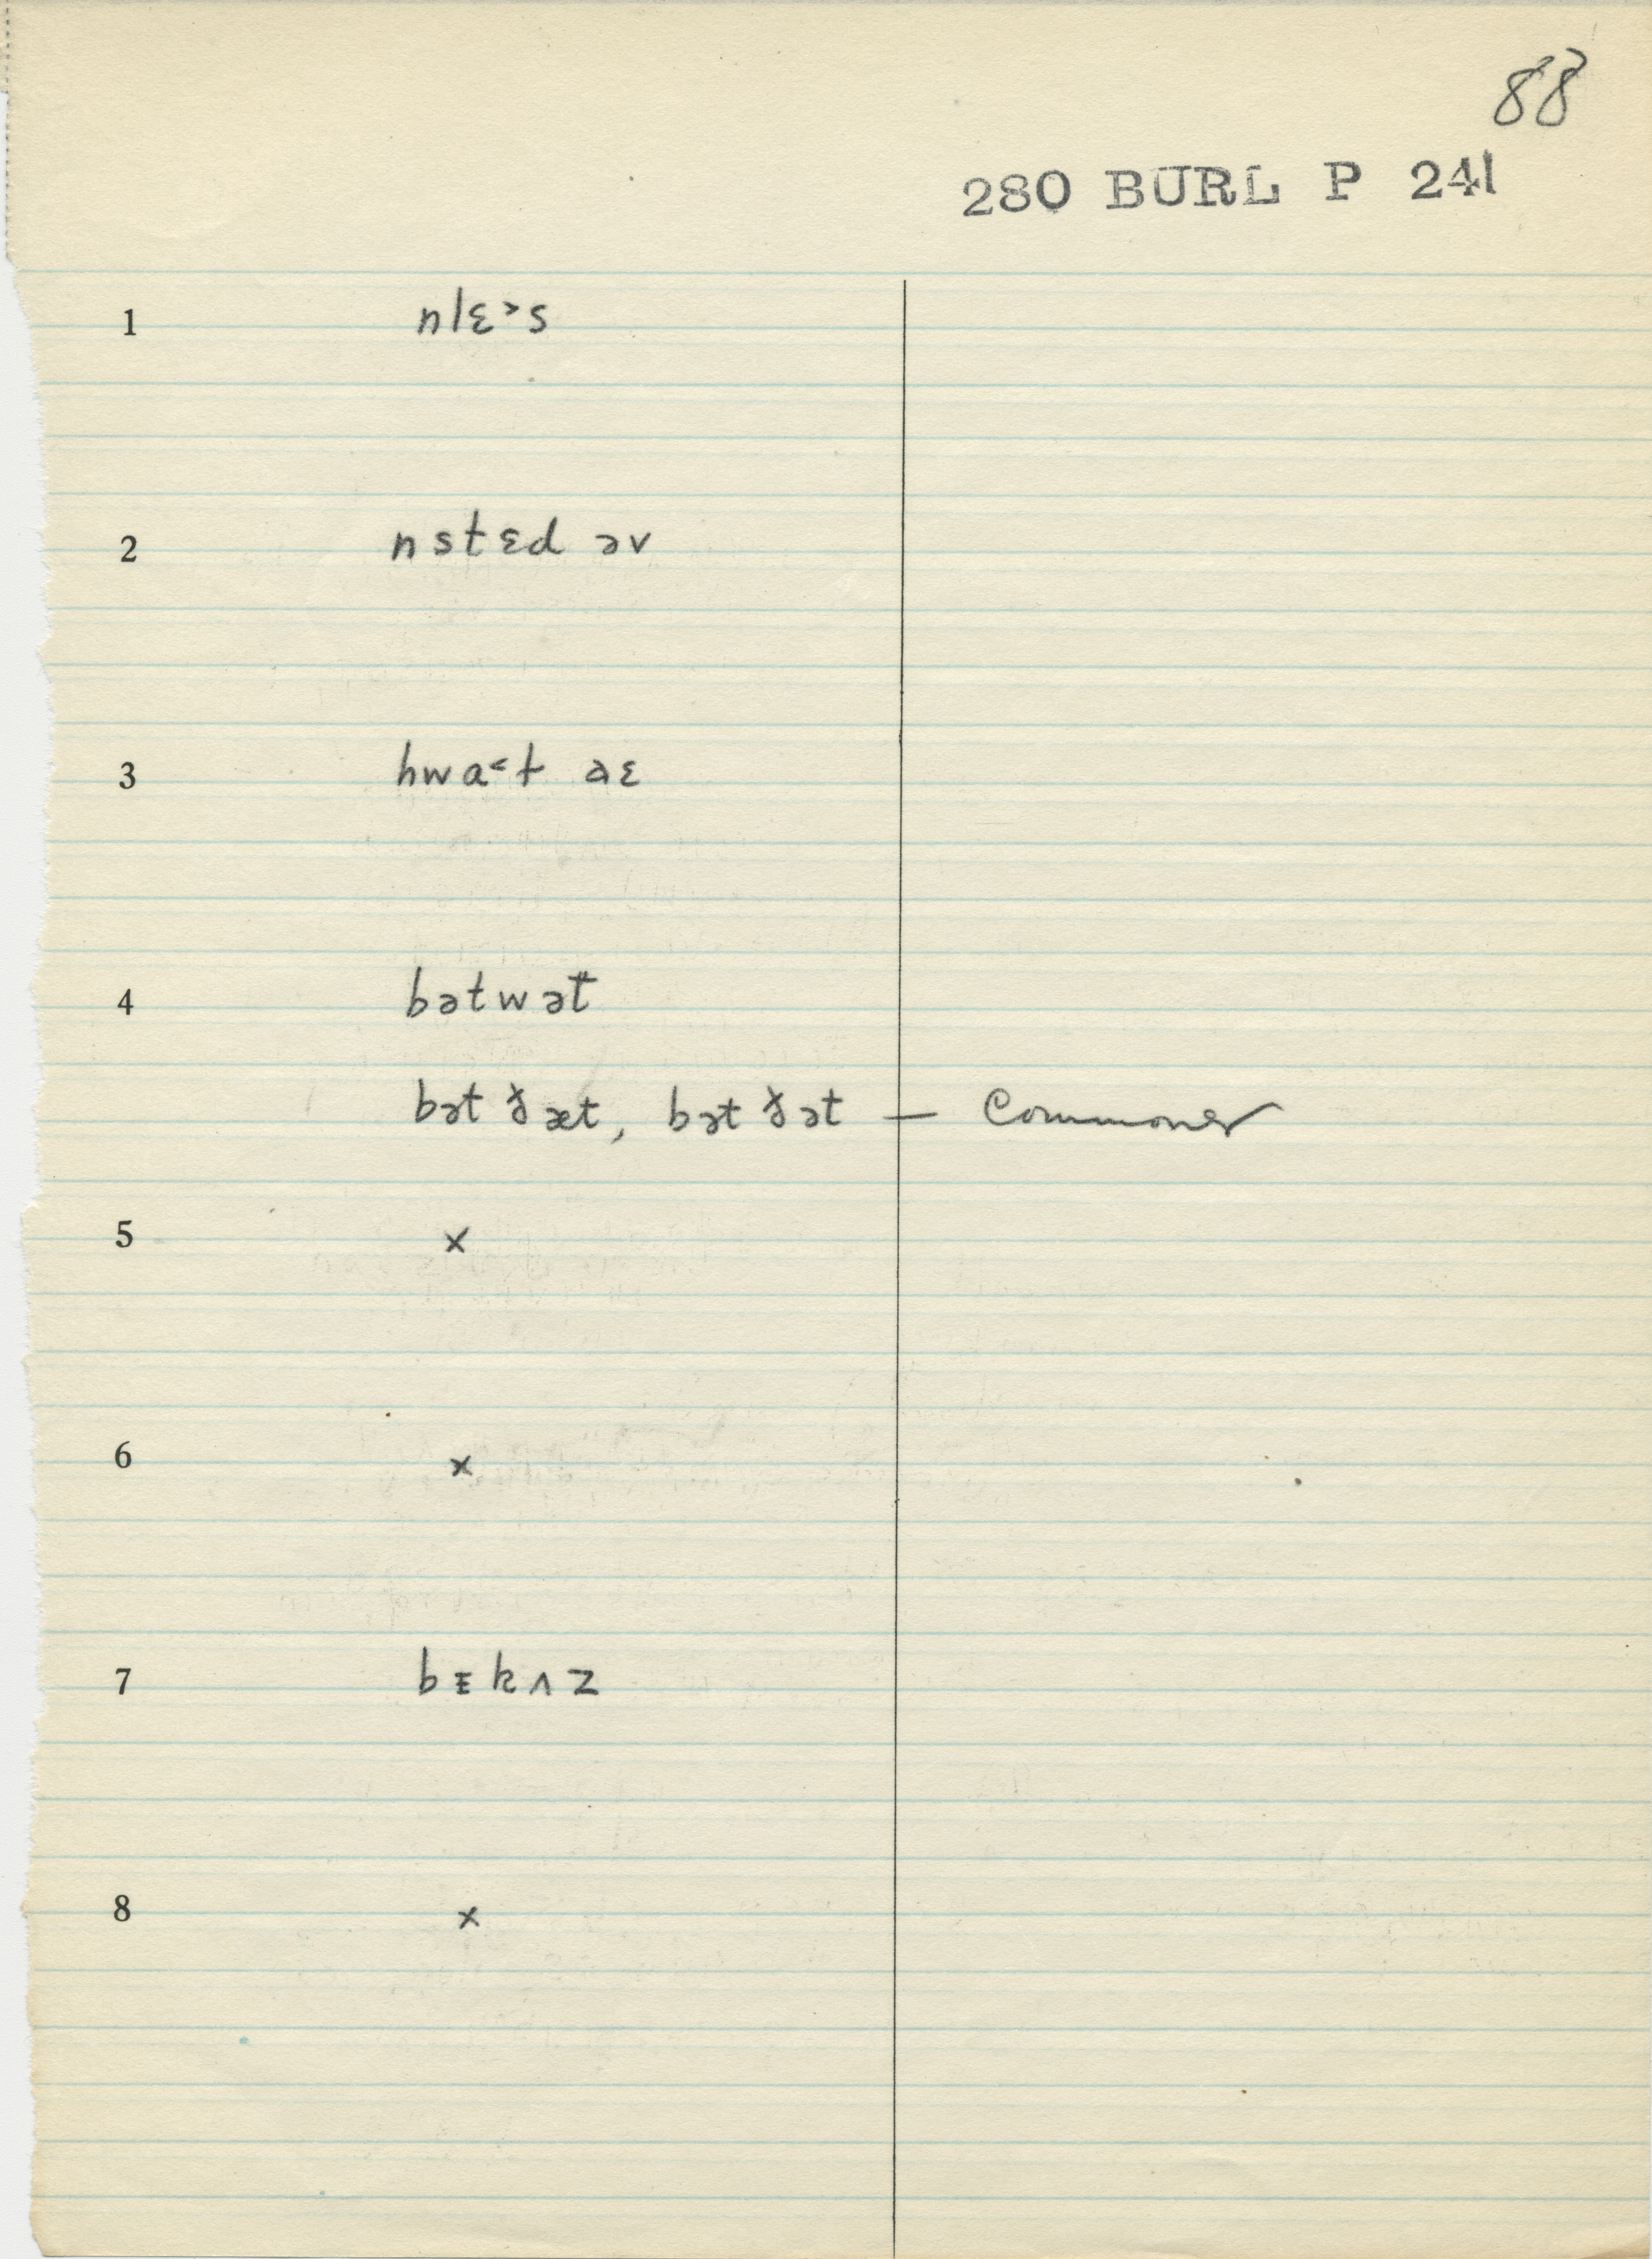 88
280 BURL P 241
1 nlɛ˃s
2 nstɛd əv
3 hwɑ˂t əɛ
4 bətwət̅
bət ðæt, bət ðət — commoner
5 ×
6 ×
7 bɪkʌz
8 ×